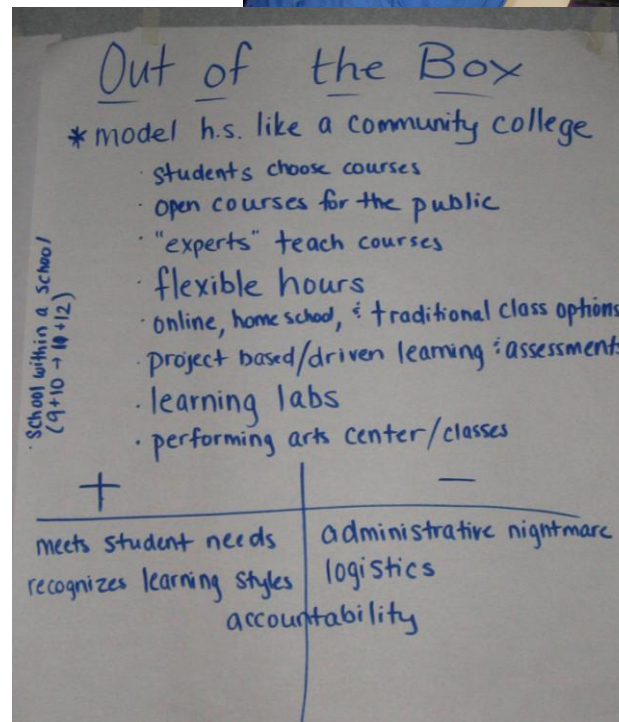 Out of the Box
* model h.s. like a community college
· students choose courses
· open courses for the public
· "experts" teach courses
· flexible hours
· online, home school, & traditional class options
· project based/driven learning & assessments
· learning labs
· performing arts center/classes
· School within a School
(9+10 → 11+12)
+
−
meets student needs
recognizes learning styles
administrative nightmare
logistics
accountability